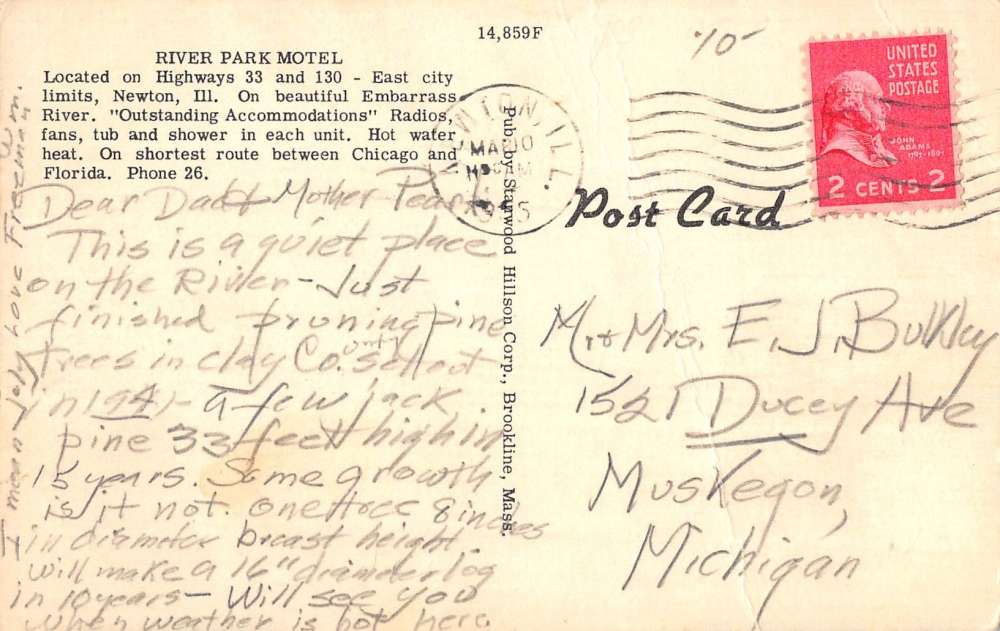 14,859F
RIVER PARK MOTEL
Located on Highways 33 and 130 - East city
limits, Newton, Ill. On beautiful Embarrass
River. "Outstanding Accommodations" Radios,
fans, tub and shower in each unit. Hot water
heat. On shortest route between Chicago and
Florida. Phone 26.
Dear Dad + Mother
This is a quiet place
on the River - Just
finished pruning pine
trees in Clay County set out
in 1941 - a few jack
pine 33 feet high in
15 years. Some growth
is it not. one tree 8 inches
in diameter breast height
will make a 16" diameter log
in 10 years - Will see you
when weather is hot here.
I mean July love Freeman
Pub. by Stanwood Hillson Corp., Brookline, Mass.
NEWTON, ILL.
MAR 10
Post Card
UNITED
STATES
POSTAGE
JOHN
ADAMS
1797-1801
2 CENTS 2
10-
Mr + Mrs. E. J. Bulkley
1521 Ducey Ave
Muskegon,
Michigan